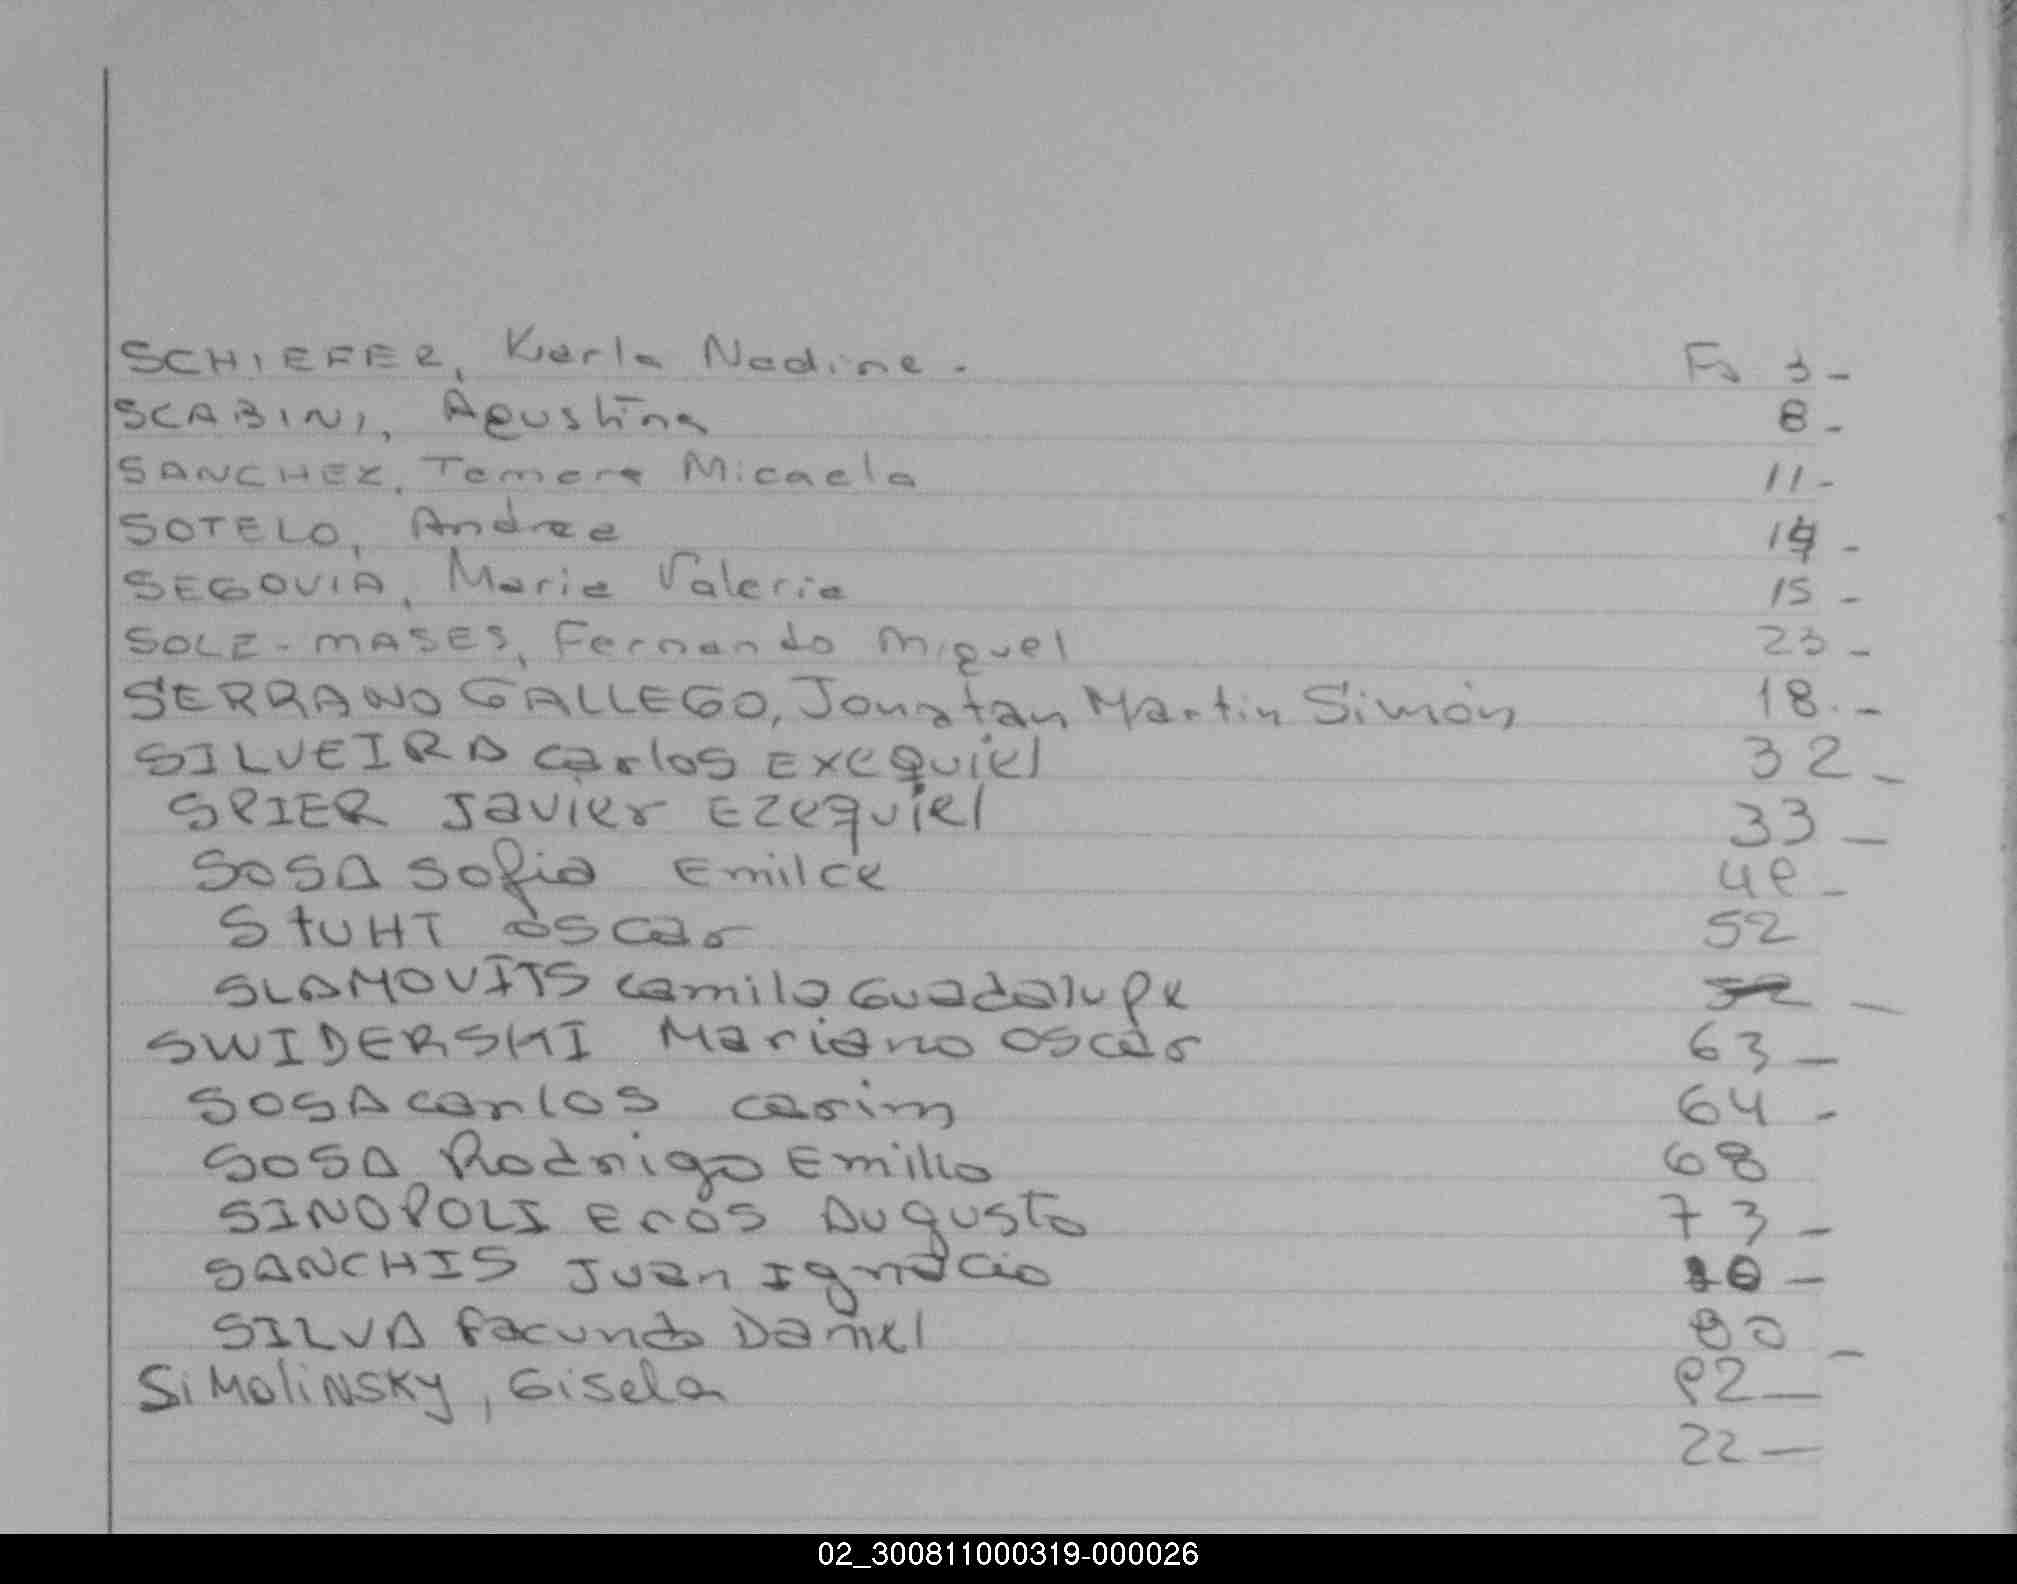 SCHIEFER, Karla Nadine. Fs 3-
SCABINI, Agustina 8-
SANCHEZ, Tamara Micaela 11-
SOTELO, Andrea 14-
SEGOVIA, Maria Valeria 15-
SOLE-MASES, Fernando Miguel 23-
SERRANO GALLEGO, Jonatan Martin Simón 18.-
SILVEIRA Carlos EXEQUIEL 32-
SPIER Javier EZEQUIEL 33-
SOSA Sofia Emilce 49-
STUHT OSCAR 52
SLAMOVITS Camila Guadalupe -
SWIDERSKI Mariano Oscar 63-
SOSA Carlos Carim 64-
SOSA Rodrigo Emilio 68
SINOPOLI Eros Augusto 73-
SANCHIS Juan Ignacio -
SILVA Facundo Daniel 90-
SiMoliNSKY, Gisela 92-
22-
02_300811000319-000026